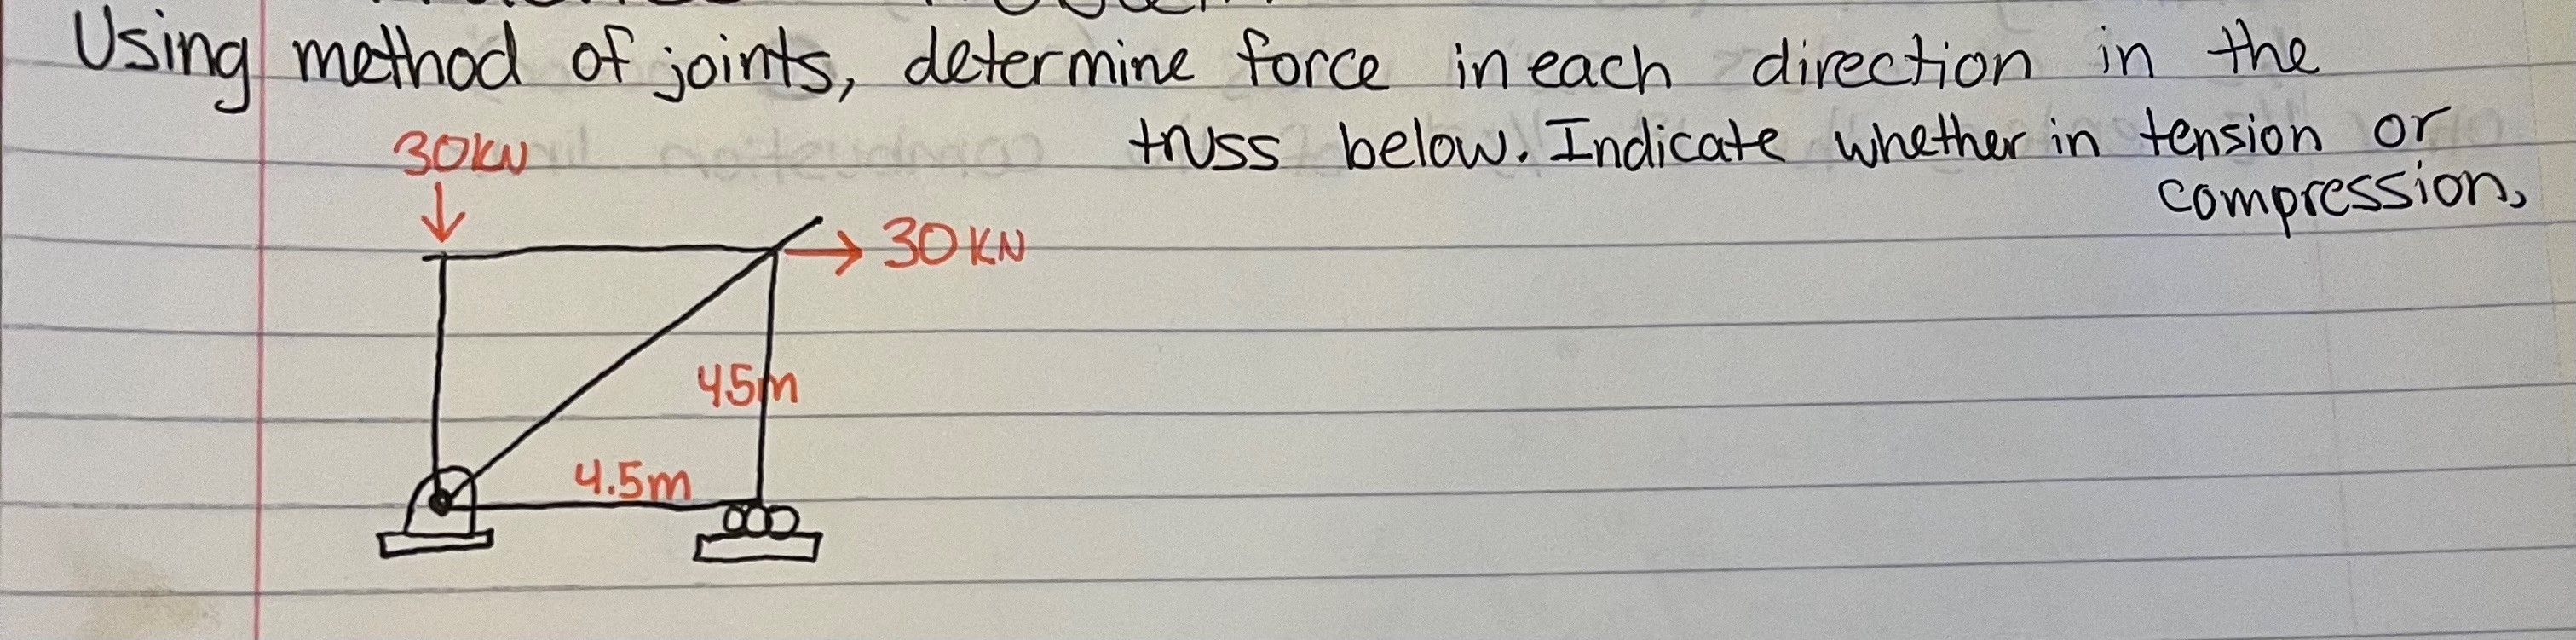 Using method of joints, determine force in each direction in the
truss below. Indicate whether in tension or
compression,
30KN
30KN
45m
4.5m